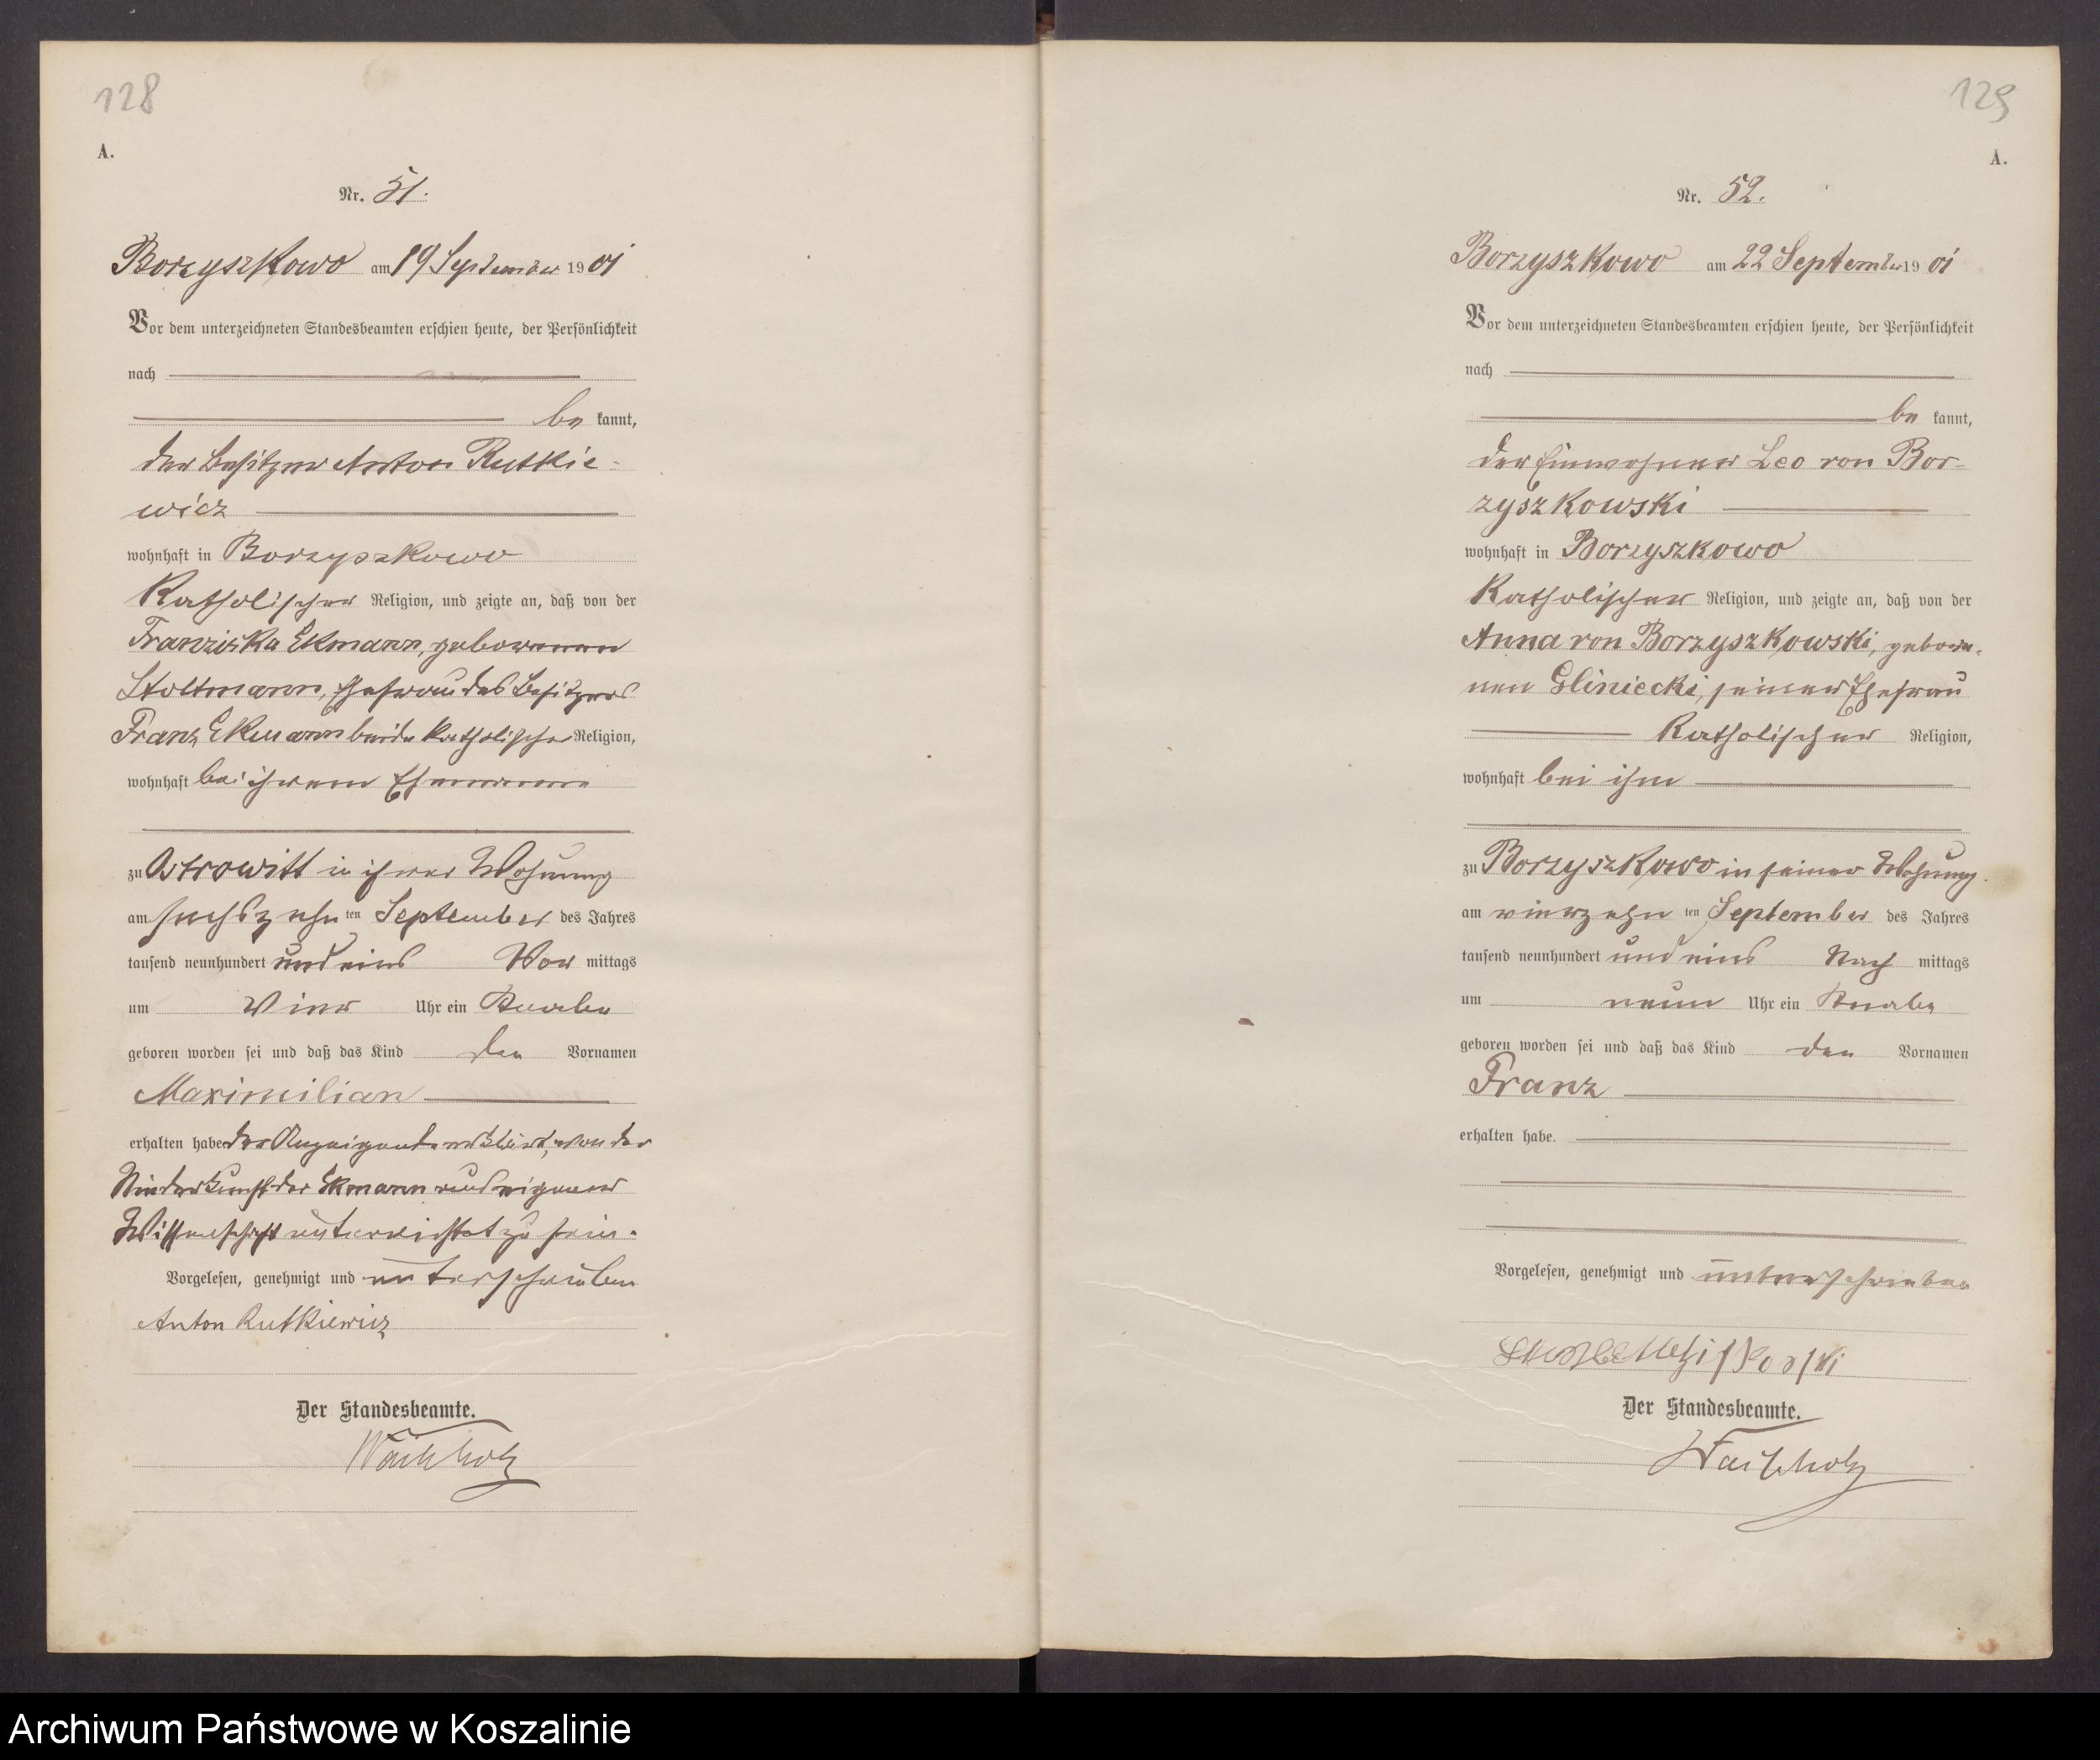 128
A.
Nr. 51.
Borzyszkowo am 19 September 1901
Vor dem unterzeichneten Standesbeamten erschien heute, der Persönlichkeit
nach
be kannt,
der Besitzer Anton Rutkie-
wicz
wohnhaft in Borzyszkowo
Katholischer Religion, und zeigte an, daß von der
Franziska Ekmann, geborenen
Stoltmann, Ehefrau des Besitzers
Franz Ekmann beide katholischer Religion,
wohnhaft bei ihrem Ehemanne
zu Ostrowitt in ihrer Wohnung
am sechszehn ten September des Jahres
tausend neunhundert und eins Vor mittags
um Vier Uhr ein Knabe
geboren worden sei und daß das Kind den Vornamen
Maximilian
erhalten habe der Anzeigende erklärt, von der
Niederkunft der Ekmann aus eigener
Wissenschaft unterrichtet zu sein.
Vorgelesen, genehmigt und unterschrieben
Anton Rutkiewicz
Der Standesbeamte.
129
A.
Nr. 52.
Borzyszkowo am 22 September 1901
Vor dem unterzeichneten Standesbeamten erschien heute, der Persönlichkeit
nach
be kannt,
der Einwohner Leo von Bor-
zyszkowski
wohnhaft in Borzyszkowo
Katholischer Religion, und zeigte an, daß von der
Anna von Borzyszkowski, gebore-
nen Gliniecki, seiner Ehefrau
Katholischer Religion,
wohnhaft bei ihm
zu Borzyszkowo in seiner Wohnung
am vierzehn ten September des Jahres
tausend neunhundert und eins Nach mittags
um neun Uhr ein Knabe
geboren worden sei und daß das Kind den Vornamen
Franz
erhalten habe.
Vorgelesen, genehmigt und unterschrieben
Der Standesbeamte.
Archiwum Państwowe w Koszalinie